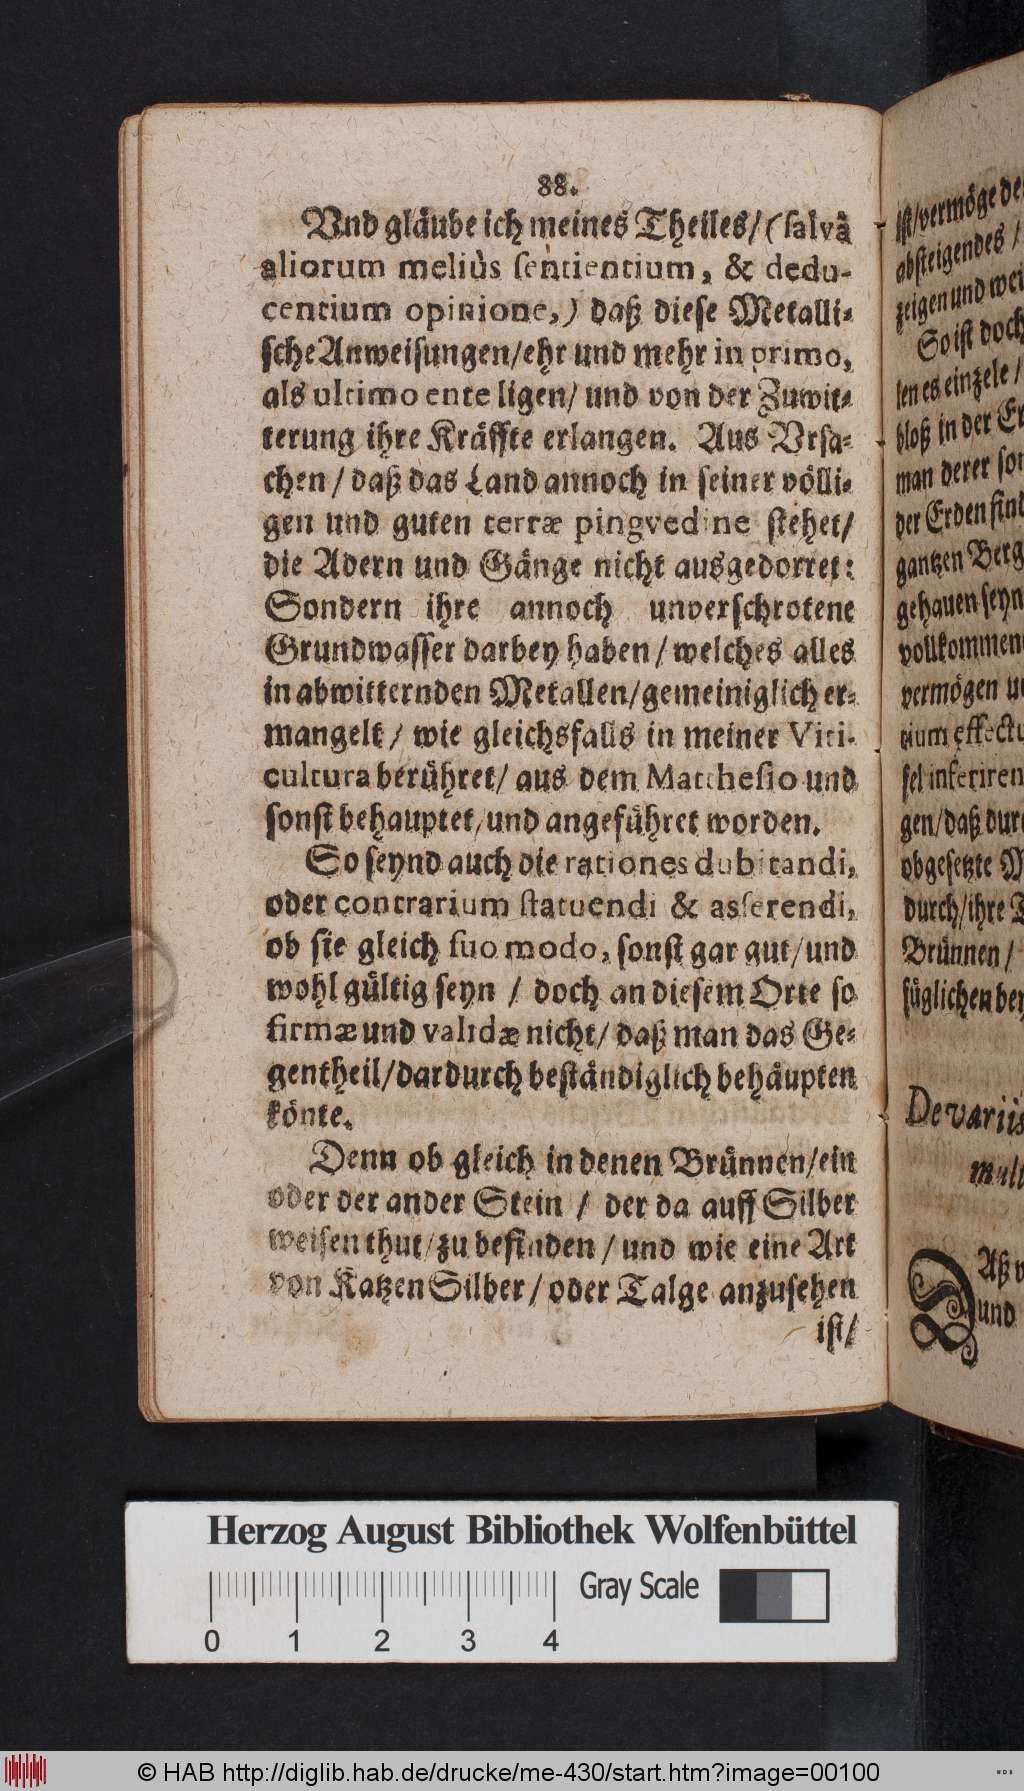 88.
Vnd gläube ich meines Theiles/ (salvâ
aliorum meliùs sentientium, & dedu-
centium opinione,) daß diese Metalli-
sche Anweisungen/ ehr und mehr in primo,
als ultimo ente ligen/ und von der Zuwit-
terung ihre Kräffte erlangen. Aus Vrsa-
chen / daß das Land annoch in seiner völli-
gen und guten terræ pingvedine stehet/
die Adern und Gänge nicht ausgedorret:
Sondern ihre annoch unverschrotene
Grundwasser darbey haben / welches alles
in abwitternden Metallen/ gemeiniglich er-
mangelt / wie gleichsfalls in meiner Viti-
cultura berühret/ aus dem Matthesio und
sonst behauptet/ und angeführet worden.
So seynd auch die rationes dubitandi,
oder contrarium statuendi & asserendi,
ob sie gleich suo modo, sonst gar gut/ und
wohl gültig seyn / doch an diesem Orte so
firmæ und validæ nicht/ daß man das Ge-
gentheil/ dardurch beständiglich behäupten
könte.
Denn ob gleich in denen Brünnen/ ein
oder der ander Stein / der da auff Silber
weisen thut/ zu befinden / und wie eine Art
von Katzen Silber / oder Talge anzusehen
ist/
ist/ vermöge
absteigendes /
zeigen und
So ist doch
len es einzele /
bloß in der
man derer
der Erden
gantzen
gehauen seyn
vermögen
sel inferiren
gen/ daß
obgesetzte
durch/ ihre
Brünnen /
füglichen
De variis
Daß
und
Herzog August Bibliothek Wolfenbüttel
Gray Scale
0 1 2 3 4
© HAB http://diglib.hab.de/drucke/me-430/start.htm?image=00100